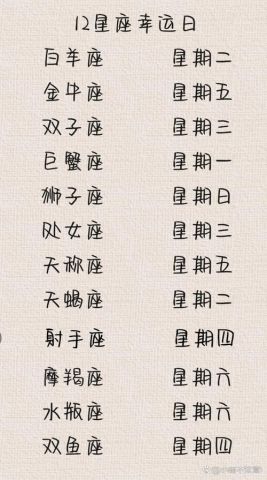 12星座幸运日
白羊座 星期二
金牛座 星期五
双子座 星期三
巨蟹座 星期一
狮子座 星期日
处女座 星期三
天称座 星期五
天蝎座 星期二
射手座 星期四
摩羯座 星期六
水瓶座 星期六
双鱼座 星期四